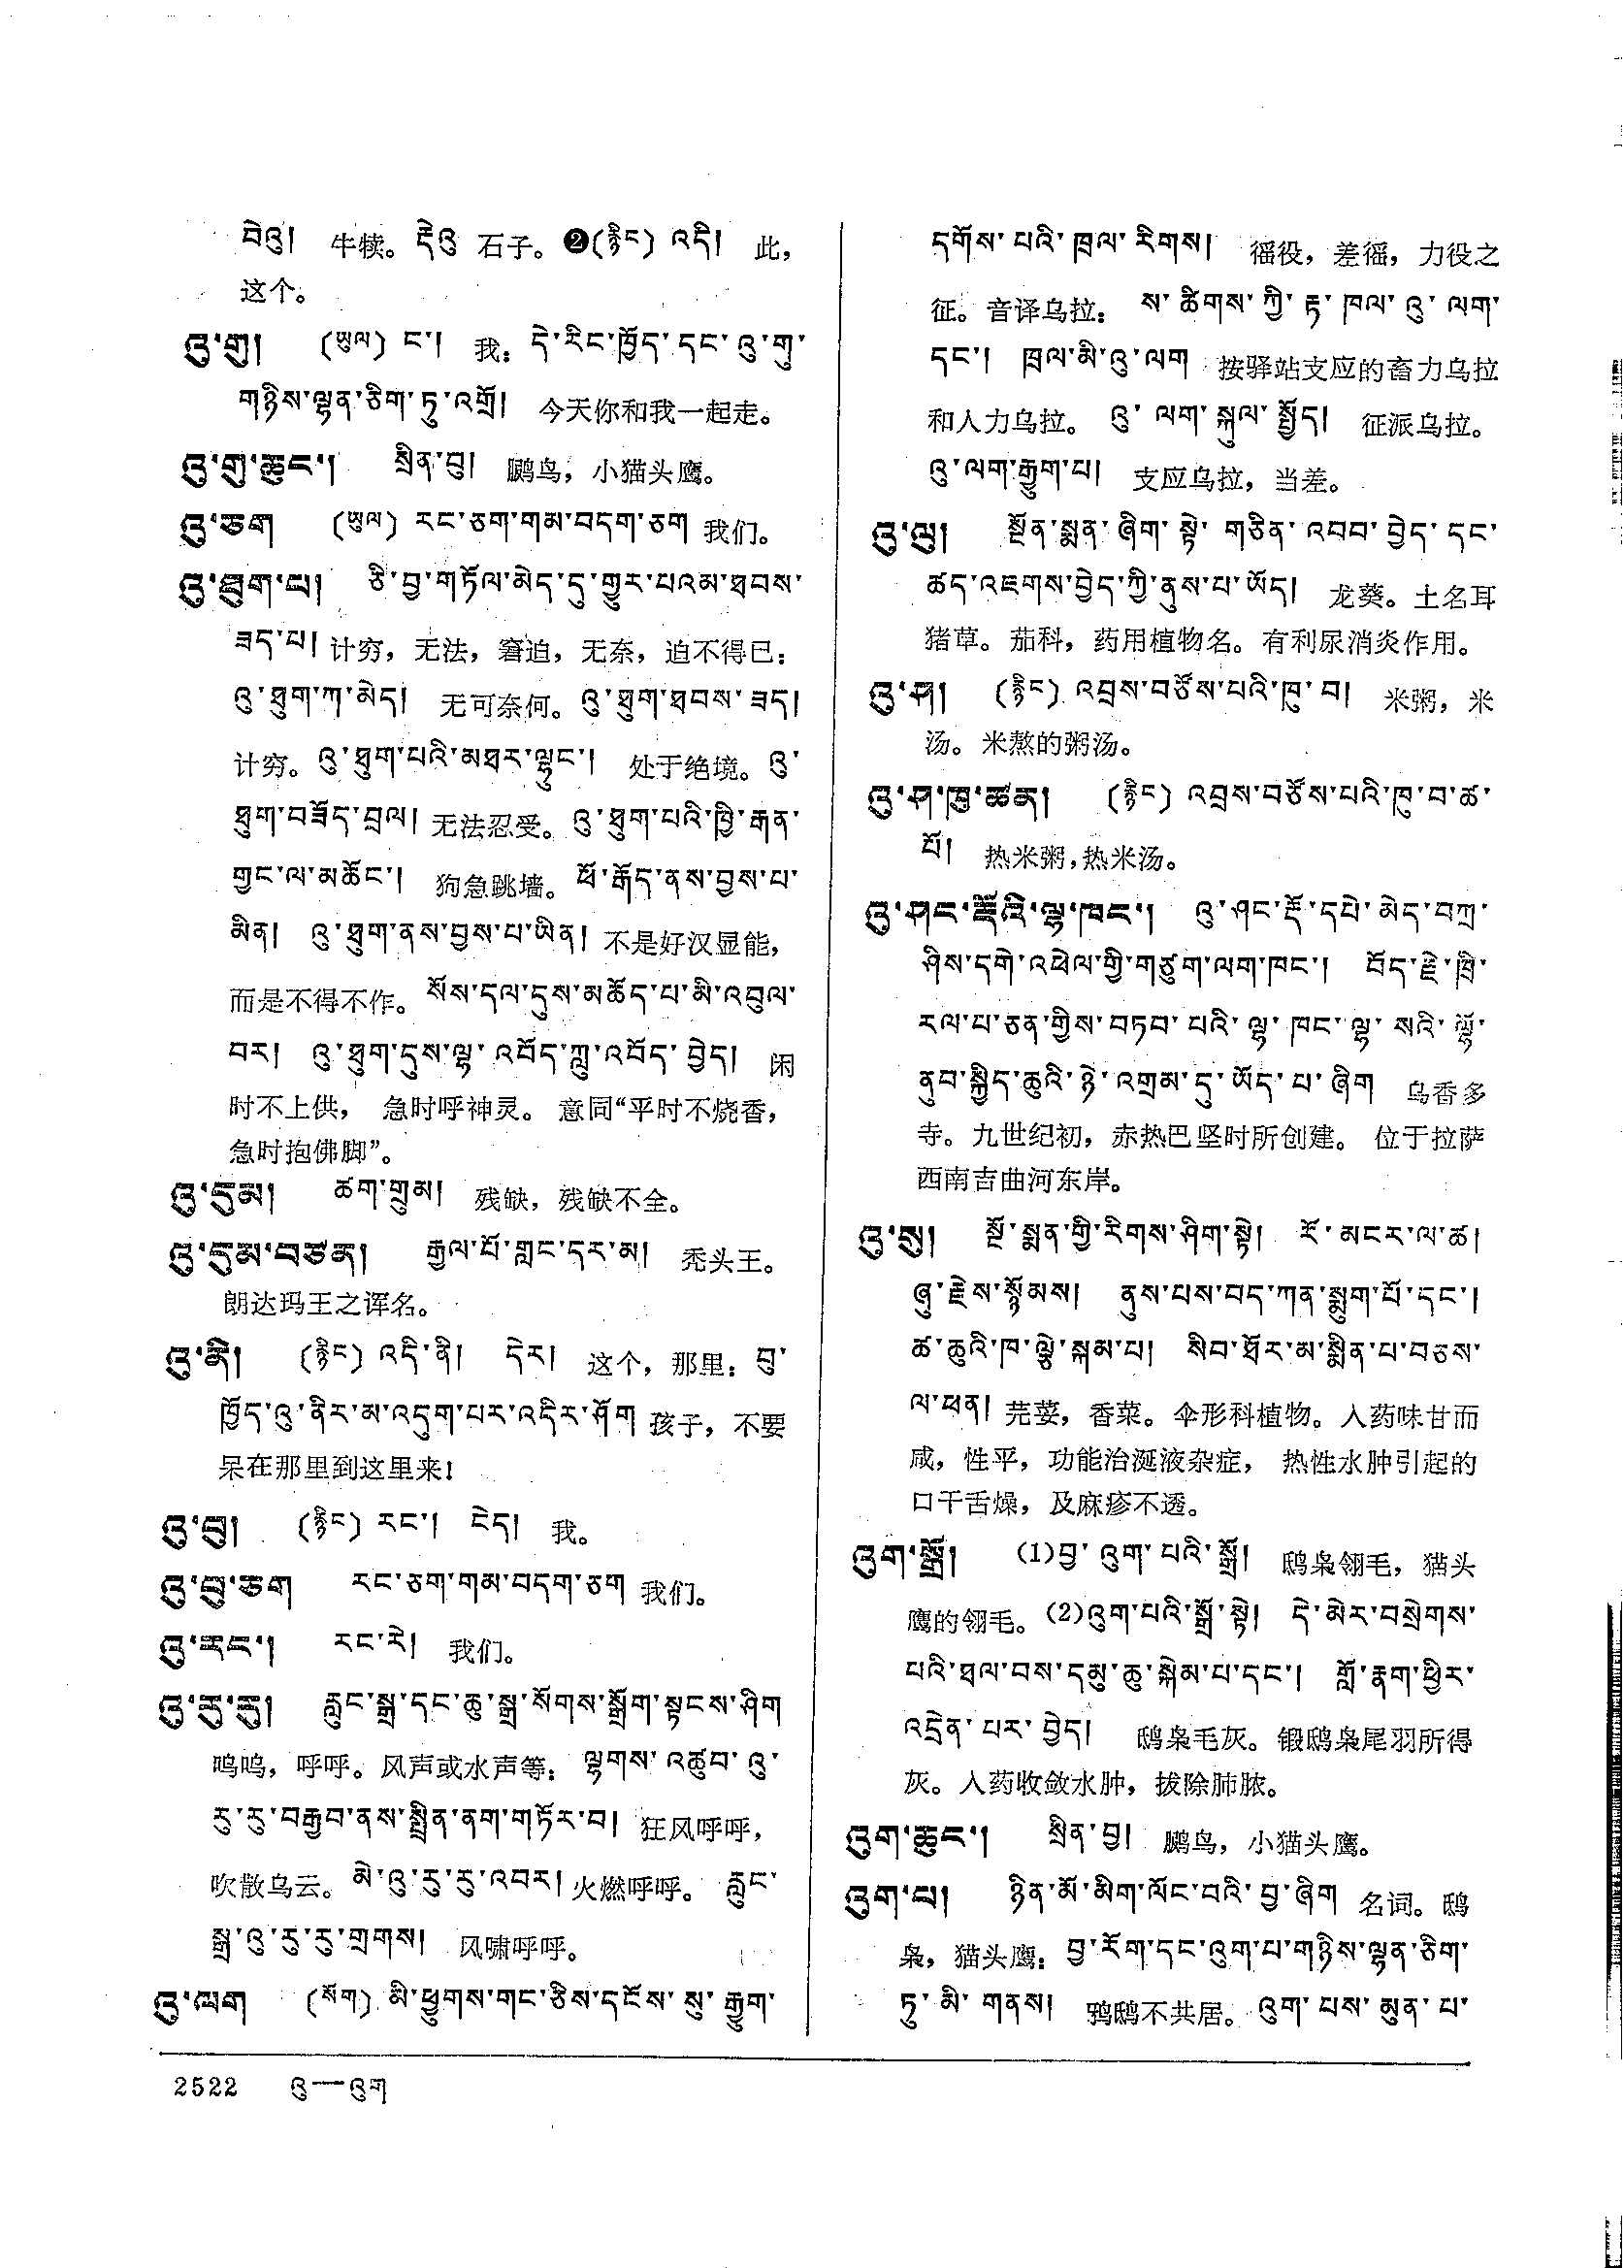 བེའུ།  牛犊。རྡེའུ  石子。❷(རྙིང) འདི།  此，
这个。
འུ་གུ།  (ཡུལ) ང་།  我：དེ་རིང་ཁྱོད་དང་འུ་གུ་
གཉིས་ལྷན་ཅིག་ཏུ་འགྲོ།  今天你和我一起走。
འུ་གུ་ཆུང་།  སྲིན་བུ།  鵩鸟，小猫头鹰。
འུ་ཅག  (ཡུལ) རང་ཅག་གམ་བདག་ཅག 我们。
འུ་ཐུག་པ།  ཅི་བྱ་གཏོལ་མེད་དུ་གྱུར་པའམ་ཐབས་
ཟད་པ། 计穷，无法，窘迫，无奈，迫不得已：
འུ་ཐུག་ཀ་མེད།  无可奈何。འུ་ཐུག་ཐབས་ཟད།
计穷。འུ་ཐུག་པའི་མཐར་ལྷུང་།  处于绝境。འུ་
ཐུག་བཟོད་བྲལ། 无法忍受。འུ་ཐུག་པའི་ཁྱི་རྒན་
གྱང་ལ་མཆོང་།  狗急跳墙。ཕོ་རྒོད་ནས་བྱས་པ་
མིན།  འུ་ཐུག་ནས་བྱས་པ་ཡིན། 不是好汉显能，
而是不得不作。སོས་དལ་དུས་མཆོད་པ་མི་འབུལ་
བར།  འུ་ཐུག་དུས་ལྷ་འབོད་ཀླུ་འབོད་བྱེད།  闲
时不上供， 急时呼神灵。 意同“平时不烧香，
急时抱佛脚”。
འུ་དུམ།  ཚག་གྲུམ།  残缺，残缺不全。
འུ་དུམ་བཙན།  རྒྱལ་པོ་གླང་དར་མ།  秃头王。
朗达玛王之诨名。
འུ་ནི།  (རྙིང) འདི་ནི།  དེར།  这个，那里：བུ་
ཁྱོད་འུ་ནིར་མ་འདུག་པར་འདིར་ཤོག 孩子，不要
呆在那里到这里来！
འུ་བུ།  (རྙིང) རང་།  ངེད།  我。
འུ་བུ་ཅག  རང་ཅག་གམ་བདག་ཅག 我们。
འུ་རང་།  རང་རེ།  我们。
འུ་རུ་རུ།  རླུང་སྒྲ་དང་ཆུ་སྒྲ་སོགས་སྒྲོག་སྟངས་ཤིག
呜呜，呼呼。风声或水声等：ལྷགས་འཚུབ་འུ་
རུ་རུ་བརྒྱབ་ནས་སྤྲིན་ནག་གཏོར་བ།  狂风呼呼，
吹散乌云。མེ་འུ་རུ་རུ་འབར། 火燃呼呼。 རླུང་
སྒྲ་འུ་རུ་རུ་གྲགས།  风啸呼呼。
འུ་ལག  (སོག) མི་ཕྱུགས་གང་ཅིས་དངོས་སུ་རྒྱུག་
དགོས་པའི་ཁྲལ་རིགས།  徭役，差徭，力役之
征。音译乌拉： ས་ཚིགས་ཀྱི་རྟ་ཁལ་འུ་ལག་
དང་།  ཁྲལ་མི་འུ་ལག  按驿站支应的畜力乌拉
和人力乌拉。 འུ་ལག་སྐུལ་སྤྱོད།  征派乌拉。
འུ་ལག་རྒྱུག་པ།  支应乌拉，当差。
འུ་ལུ།  སྔོན་སྨན་ཞིག་སྟེ་གཅིན་འབབ་བྱེད་དང་
ཚད་འཇགས་བྱེད་ཀྱི་ནུས་པ་ཡོད།  龙葵。土名耳
猪草。茄科，药用植物名。有利尿消炎作用。
འུ་ཤ།  (རྙིང) འབྲས་བཙོས་པའི་ཁུ་བ།  米粥，米
汤。米熬的粥汤。
འུ་ཤ་ཁུ་ཚན།  (རྙིང) འབྲས་བཙོས་པའི་ཁུ་བ་ཚ་
པོ།  热米粥，热米汤。
འུ་ཤང་རྡོའི་ལྷ་ཁང་།  འུ་ཤང་རྡོ་དཔེ་མེད་བཀྲ་
ཤིས་དགེ་འཕེལ་གྱི་གཙུག་ལག་ཁང་།  བོད་རྗེ་ཁྲི་
རལ་པ་ཅན་གྱིས་བཏབ་པའི་ལྷ་ཁང་ལྷ་སའི་ལྷོ་
ནུབ་སྐྱིད་ཆུའི་ཉེ་འགྲམ་དུ་ཡོད་པ་ཞིག  乌香多
寺。九世纪初，赤热巴坚时所创建。 位于拉萨
西南吉曲河东岸。
འུ་སུ།  སྔོ་སྨན་གྱི་རིགས་ཤིག་སྟེ།  རོ་མངར་ལ་ཚ།
ཞུ་རྗེས་སྙོམས།  ནུས་པས་བད་ཀན་སྨུག་པོ་དང་།
ཚ་ཆུའི་ཁ་ལྕེ་སྐམ་པ།  སིབ་ཐོར་མ་སྨིན་པ་བཅས་
ལ་ཕན། 芫荽，香菜。伞形科植物。入药味甘而
咸，性平，功能治涎液杂症， 热性水肿引起的
口干舌燥，及麻疹不透。
འུག་སྒྲོ།  (1)བྱ་འུག་པའི་སྒྲོ།  鸱枭翎毛，猫头
鹰的翎毛。(2)འུག་པའི་སྒྲོ་སྟེ།  དེ་མེར་བསྲེགས་
པའི་ཐལ་བས་དམུ་ཆུ་སྐེམ་པ་དང་།  གློ་རྣག་ཕྱིར་
འདྲེན་པར་བྱེད།  鸱枭毛灰。锻鸱枭尾羽所得
灰。入药收敛水肿，拔除肺脓。
འུག་ཆུང་།  སྲིན་བྱ།  鵩鸟，小猫头鹰。
འུག་པ།  ཉིན་མོ་མིག་ལོང་བའི་བྱ་ཞིག  名词。鸱
枭，猫头鹰：བྱ་རོག་དང་འུག་པ་གཉིས་ལྷན་ཅིག་
ཏུ་མི་གནས།  鸦鸱不共居。འུག་པས་མུན་པ་
2522  འུ—འུག